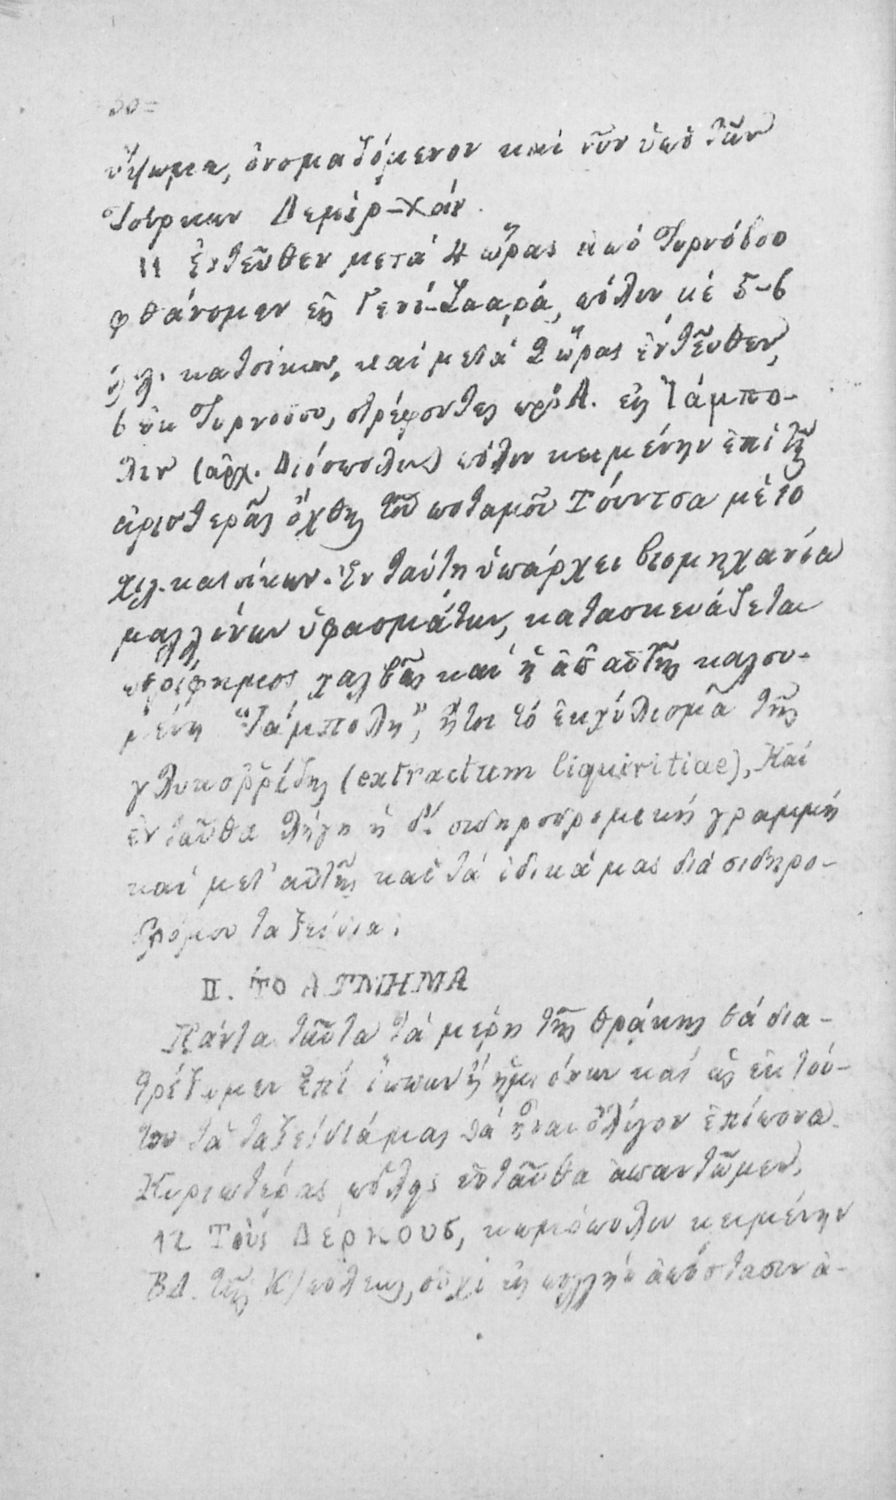 ὕψωμα, ὀνομαζόμενον καὶ νῦν ὑπὸ τῶν
Τούρκων Δεμὶρ-Χάν.
11 Ἐντεῦθεν μετά 4 ὥρας ἀπό Τυρνόβου
φθάνομεν εἰς Γενί-Ζααρά, πόλιν μέ 5-6
χιλ. κατοίκων, καί μετά 2 ὥρας ἐντεῦθεν,
6 ἐκ Τυρνόβου, στρέφοντες πρὸς Α. εἰς Ἰάμπο-
λιν (ἀρχ. Διόσπολις) πόλιν κειμένην ἐπὶ τῆς
ἀριστερᾶς ὄχθης τοῦ ποταμοῦ Τούντσα μέ 10
χιλ. κατοίκων. Ἐν ταύτῃ ὑπάρχει βιομηχανία
μαλλίνων ὑφασμάτων, κατασκευάζεται
περίφημος χαλβᾶς καί ἡ ἀπ' αὐτῆς καλου-
μένη "Ἰάμπολη", ἤτοι τό ἐκχύλισμα τῆς
γλυκορρίζης (extractum liquiritiae). Καί
ἐνταῦθα λήγει ἡ δ! σιδηροδρομική γραμμή
καί μετ' αὐτῆς καὶ τά ἰδικά μας διά σιδηρο-
δρόμου ταξείδια.
II. ΤΟ Α ΤΜΗΜΑ
Πάντα ταῦτα τά μέρη τῆς Θράκης θά δια-
τρέξωμεν ἐπί ἵππων ἤ ἡμιόνων καί ὡς ἐκ τού-
του τά ταξείδιά μας θά εἶναι ὀλίγον ἐπίπονα.
Κυριωτέρας πόλεις ἐνταῦθα ἀπαντῶμεν,
12 Τούς ΔΕΡΚΟΥΣ, κωμόπολιν κειμένην
ΒΔ. τῆς Κ/πόλεως, οὐχί εἰς πολλήν ἀπόστασιν ἀ-